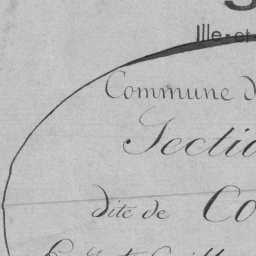 Ille-et
Commune d
Sectio
dite de Co